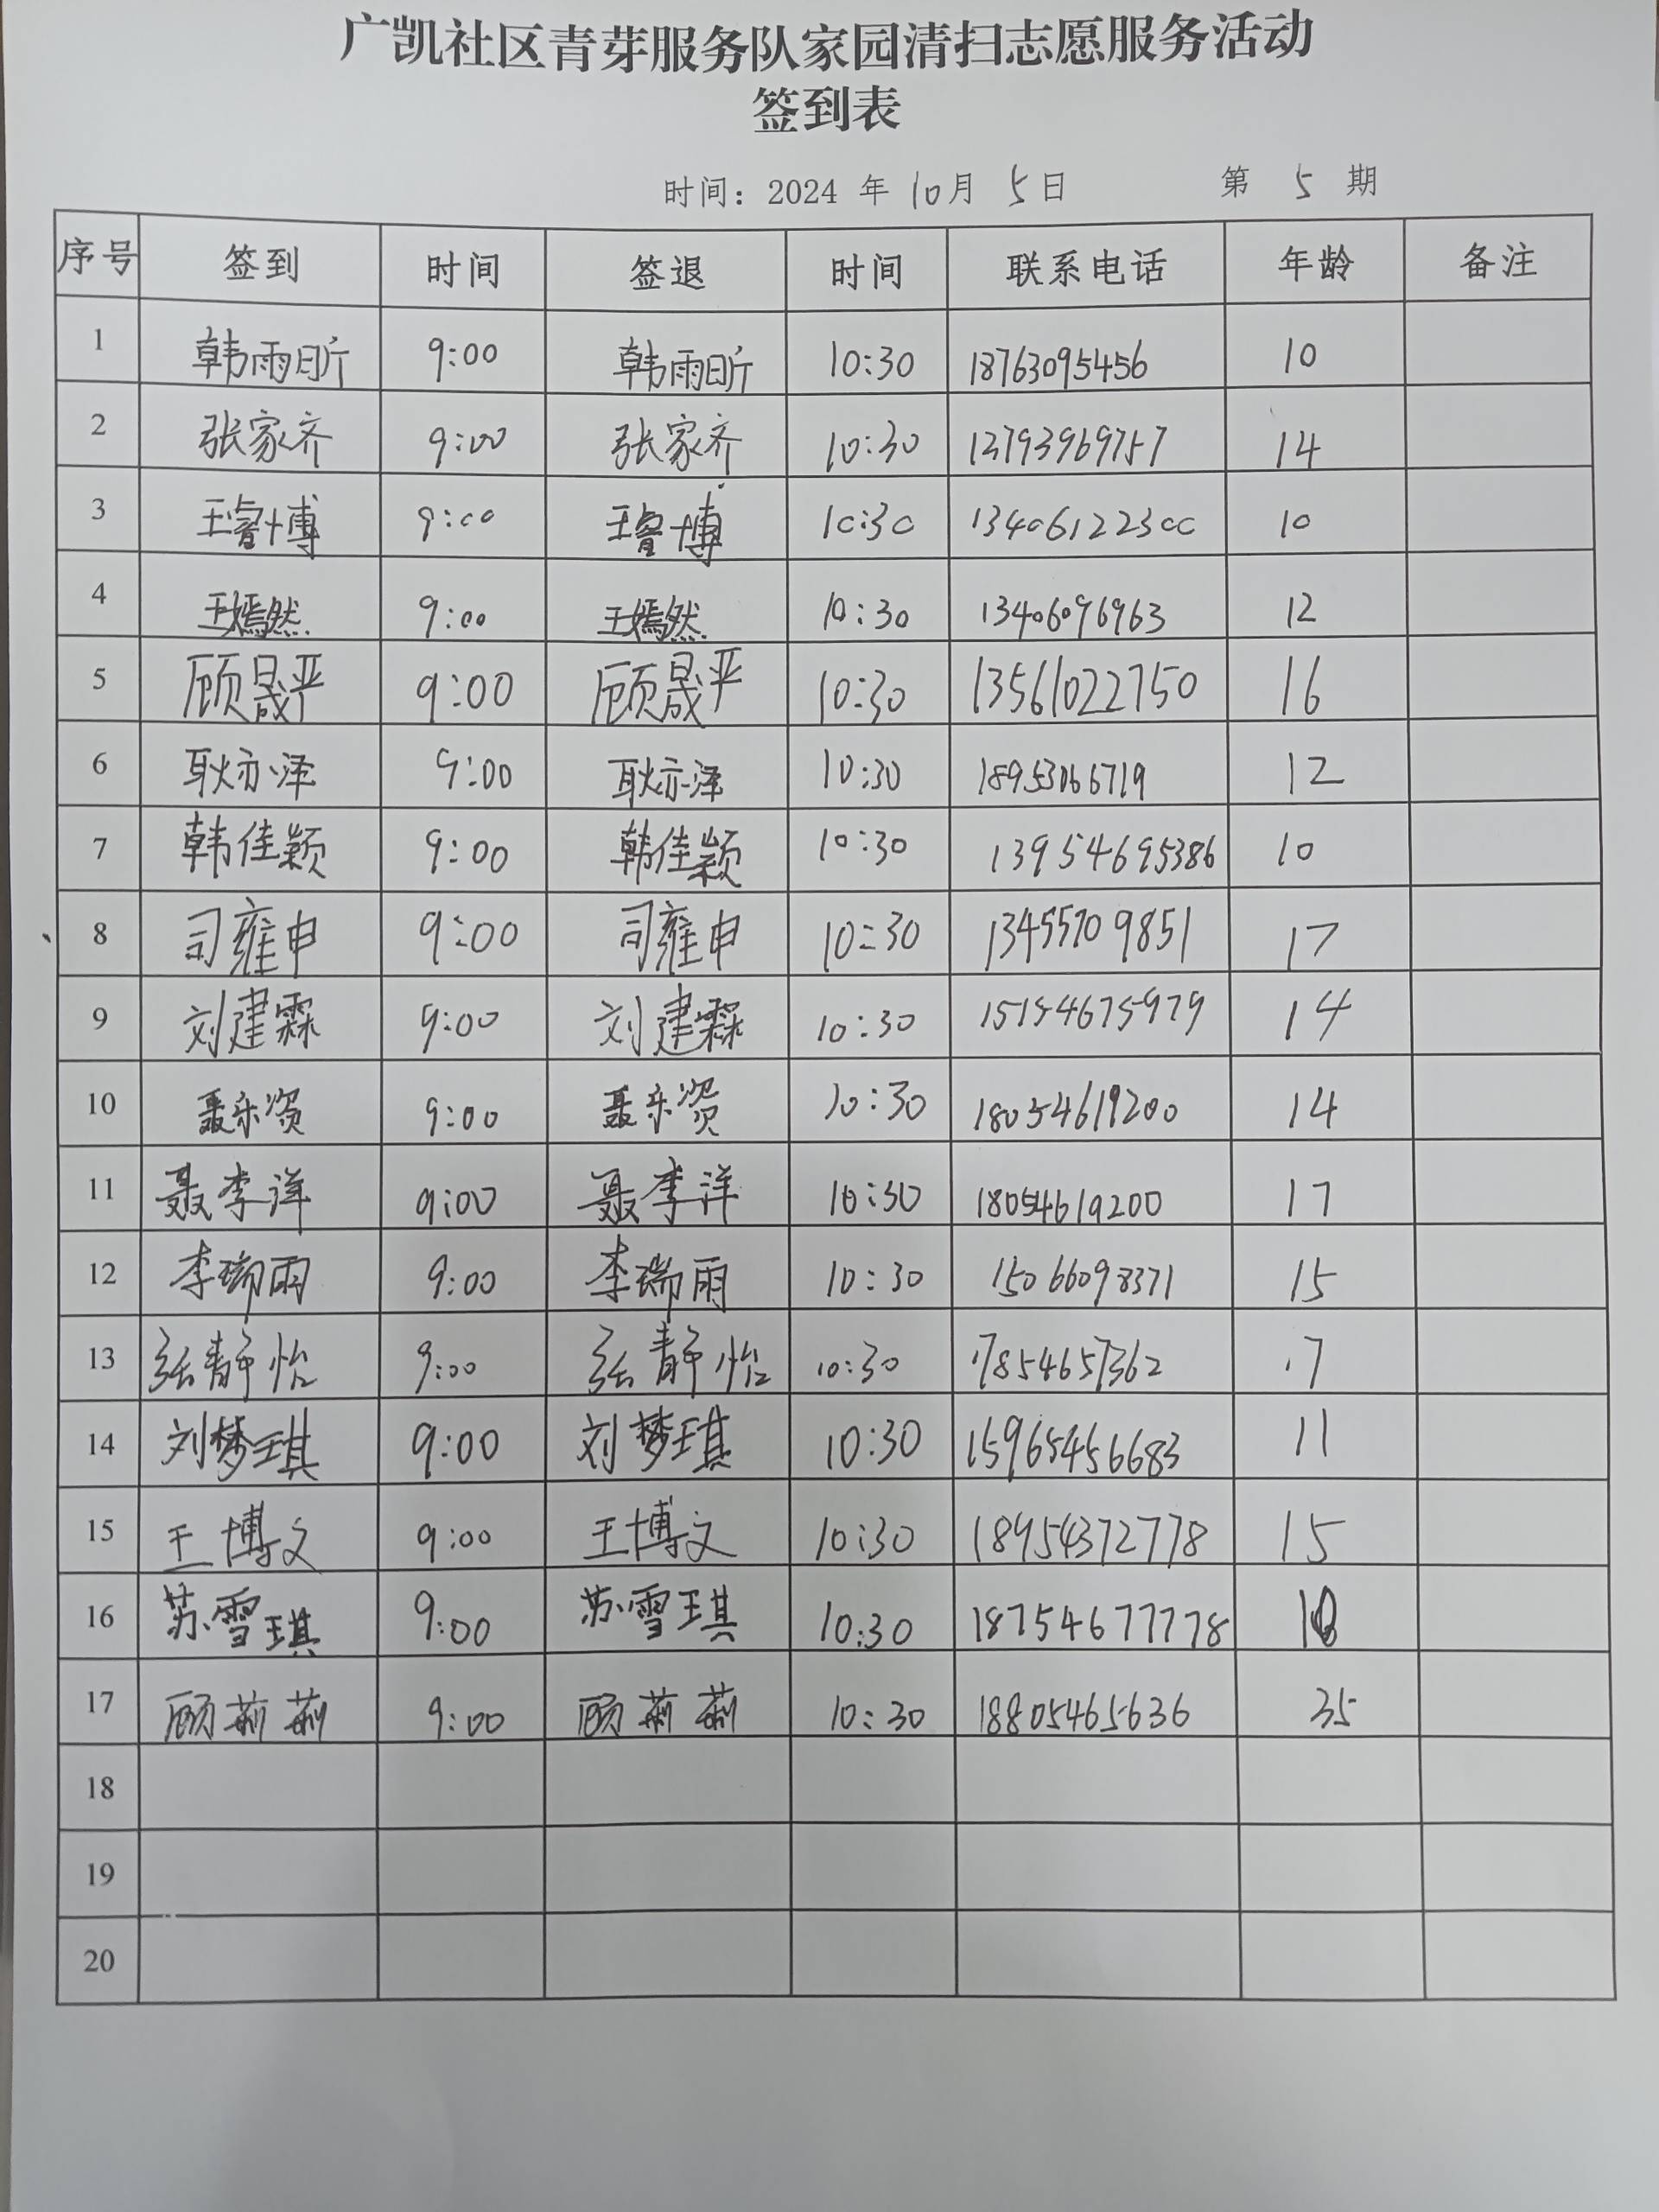 广凯社区青芽服务队家园清扫志愿服务活动
签到表
时间：2024 年 10月 5日 第 5 期
序号 签到 时间 签退 时间 联系电话 年龄 备注
1 韩雨昕 9:00 韩雨昕 10:30 18763095456 10
2 张家齐 9:00 张家齐 10:30 13793969757 14
3 王睿博 9:00 王睿博 10:30 13406122300 10
4 王嫣然 9:00 王嫣然 10:30 13406096963 12
5 顾晟严 9:00 顾晟严 10:30 13561022750 16
6 耿亦泽 9:00 耿亦泽 10:30 18953066719 12
7 韩佳颖 9:00 韩佳颖 10:30 13954695386 10
8 司雍申 9:00 司雍申 10:30 13455709851 17
9 刘建霖 9:00 刘建霖 10:30 15154675979 14
10 聂乐资 9:00 聂乐资 10:30 18054619200 14
11 聂李洋 9:00 聂李洋 10:30 18054619200 17
12 李瑞雨 9:00 李瑞雨 10:30 15066098371 15
13 张静怡 9:00 张静怡 10:30 17854657362 17
14 刘梦琪 9:00 刘梦琪 10:30 15965456683 11
15 王博文 9:00 王博文 10:30 18954372778 15
16 苏雪琪 9:00 苏雪琪 10:30 18754677778
17 顾莉莉 9:00 顾莉莉 10:30 18805465636 35
18
19
20